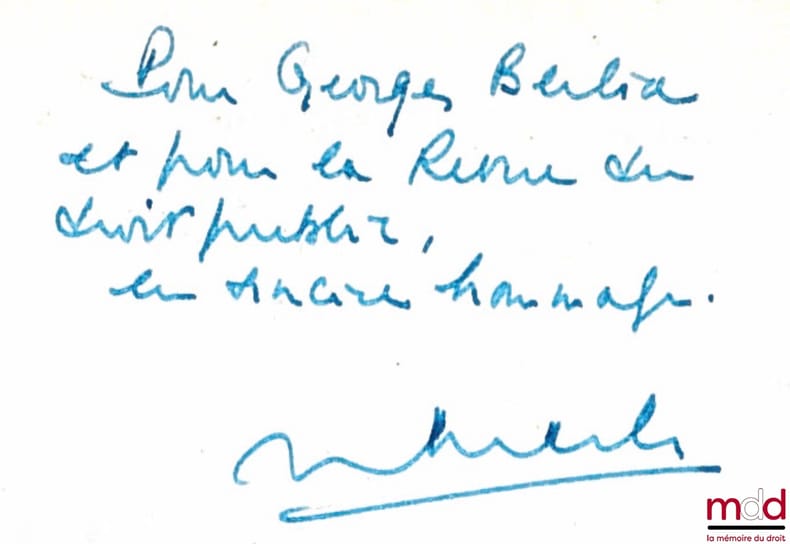 Pour Georges Berlia
et pour la Revue du
droit public,
en sincère hommage.
mdd
la mémoire du droit